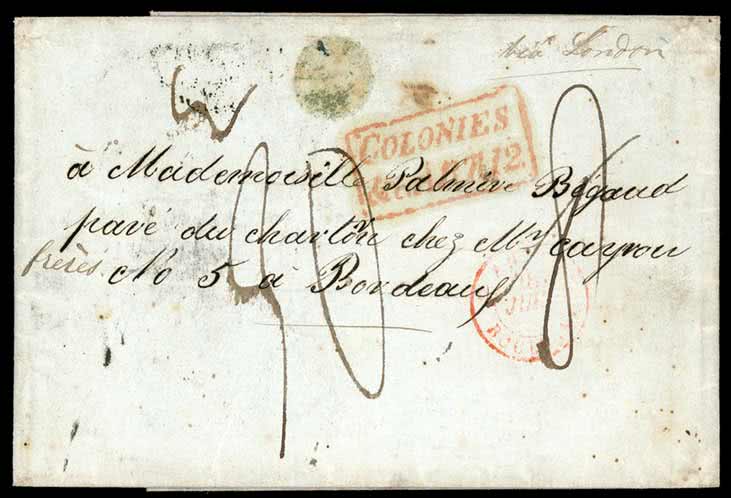 via London
COLONIES
&c. ART. 12.
à Mademoiselle Palmire Bégaud
pavé du chartron chez Mr. cayrou
frères
No 5 à Bordeaux
30
8